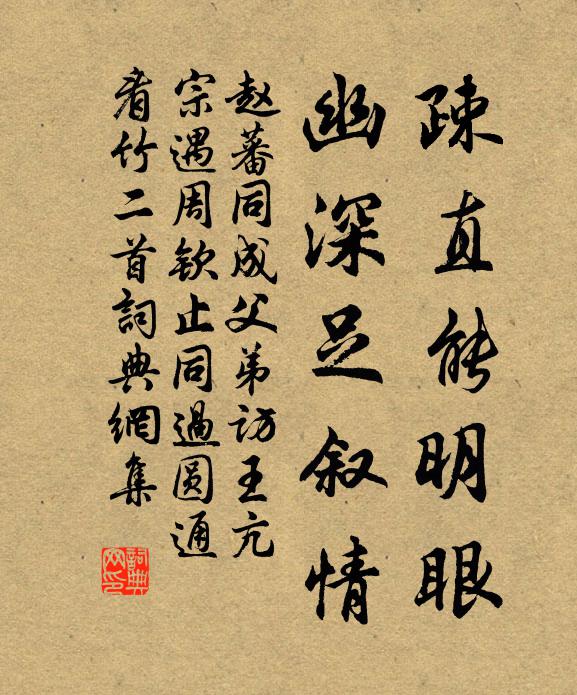 疎直能明眼
幽深足叙情
赵蕃同成父弟访王亢
宗遇周钦止同過圆通
看竹二首詞典網集
詞典网印